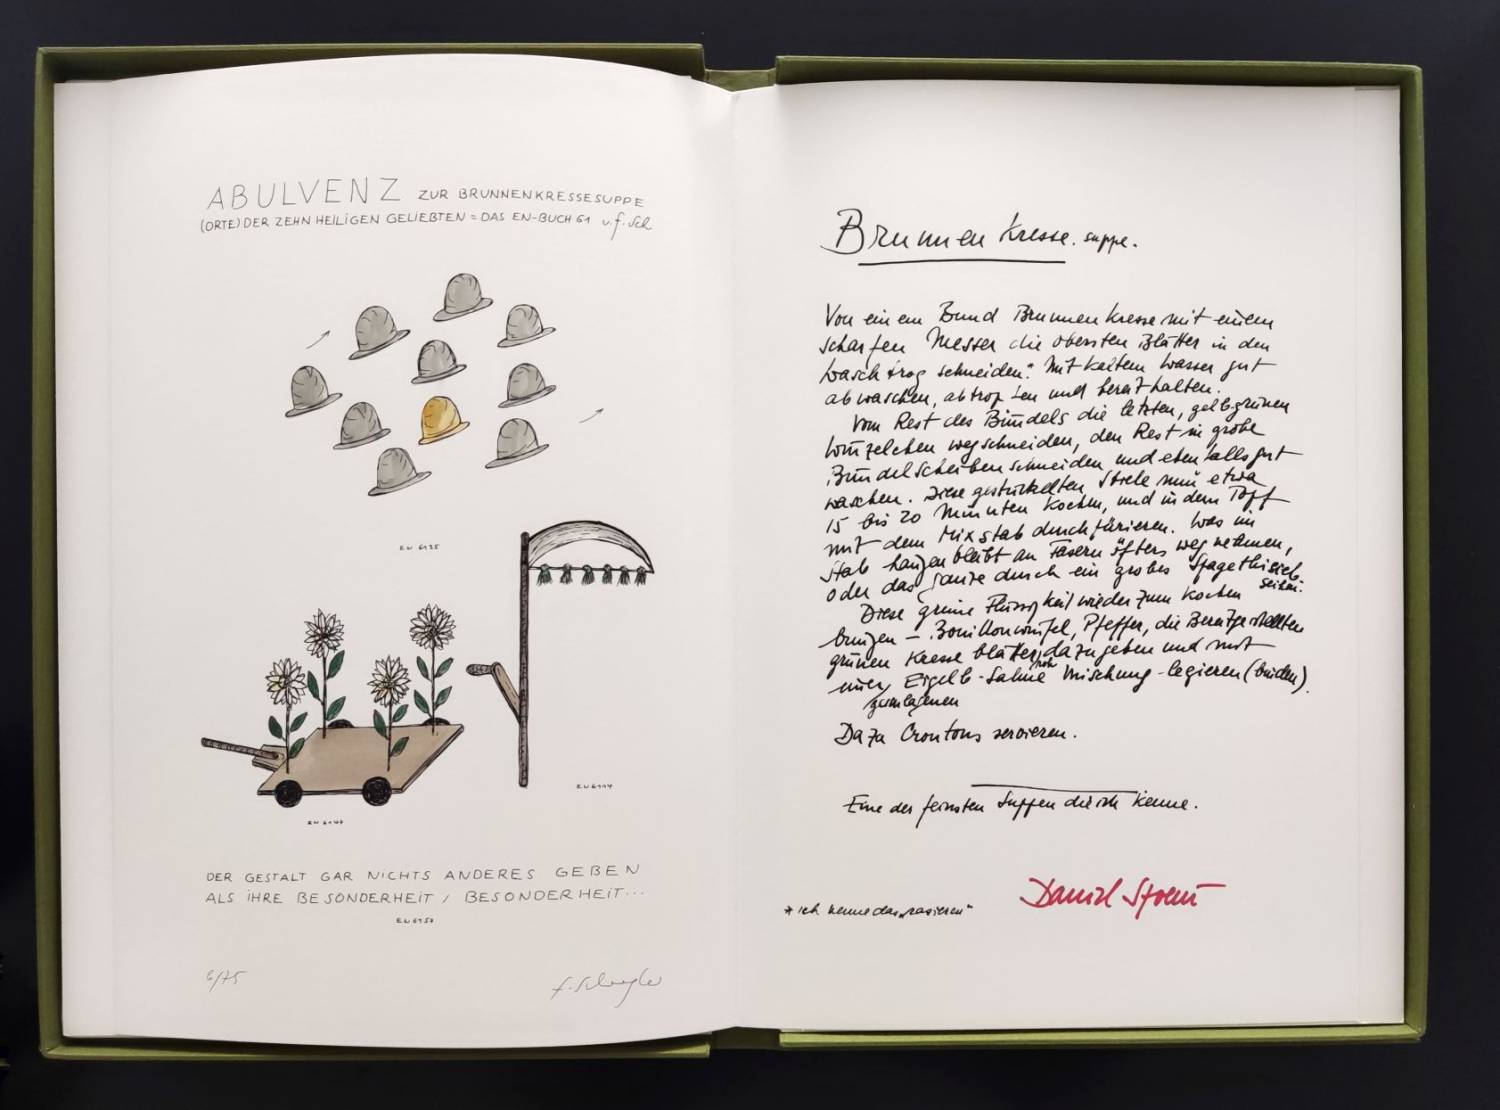 ABULVENZ ZUR BRUNNENKRESSESUPPE
(ORTE) DER ZEHN HEILIGEN GELIEBTEN = DAS EN-BUCH 61 v. f. Sch
EN 6135
EN 6114
EN 6147
DER GESTALT GAR NICHTS ANDERES GEBEN
ALS IHRE BESONDERHEIT / BESONDERHEIT...
EN 6157
6/75
Brunnen Kresse. suppe.
Von einem Bund Brunnenkresse mit einem
scharfen Messer die obersten Blätter in den
Waschtrog schneiden.* Mit kaltem Wasser gut
abwaschen, abtropfen und bereithalten.
Vom Rest des Bündels die letzten, gelbgrünen
Würzelchen wegschneiden, den Rest in grobe
Bündelscheiben schneiden und ebenfalls gut
waschen. Diese gestückelten Stiele nun etwa
15 bis 20 Minuten kochen, und in dem Topf
mit dem Mixstab durchpürieren. Was im
Stab hangen bleibt an Fasern öfters wegnehmen,
oder das ganze durch ein grobes Spagethisieb
seihen.
Diese grüne Flüssigkeit wieder zum Kochen
bringen - Bouillonwürfel, Pfeffer, die Bereitgestellten
grünen Kresseblätter dazugeben und mit
einer Eigelb-Sahne Mischung - legieren (binden).
Dazu Croutons servieren.
Eine der feinsten Suppen die ich kenne.
* ich nenne das "rasieren"
Daniel Spoerri